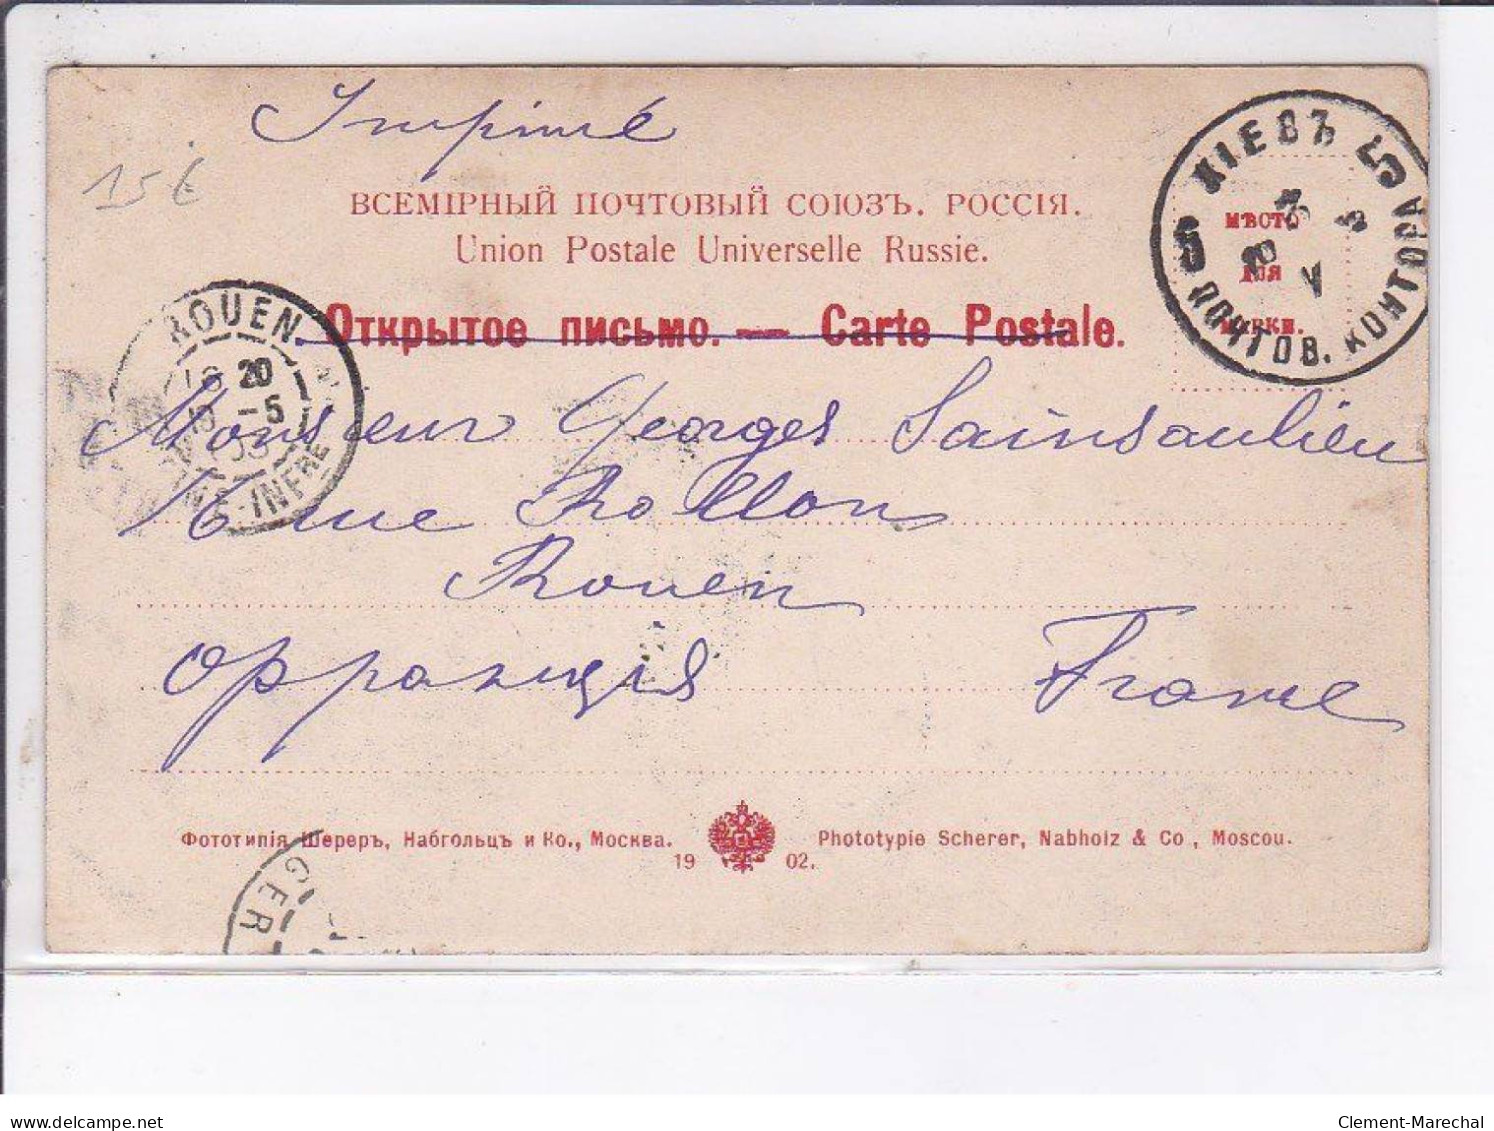 Imprimé
15 €
ВСЕМІРНЫЙ ПОЧТОВЫЙ СОЮЗЪ. РОССІЯ.
Union Postale Universelle Russie.
Открытое письмо. — Carte Postale.
КІЕВЪ 5
ПОЧТОВ. КОНТОРА
МѢСТО
ДЛЯ
МАРКИ.
ROUEN
20
-5
03
INFRE
Monsieur Georges Sainsaulieu
rue Rollon
Rouen
Франція France
Фототипія Шереръ, Набгольцъ и Ко., Москва. Phototypie Scherer, Nabholz & Co, Moscou.
1902.
GER
delcampe.net
Clement-Marechal